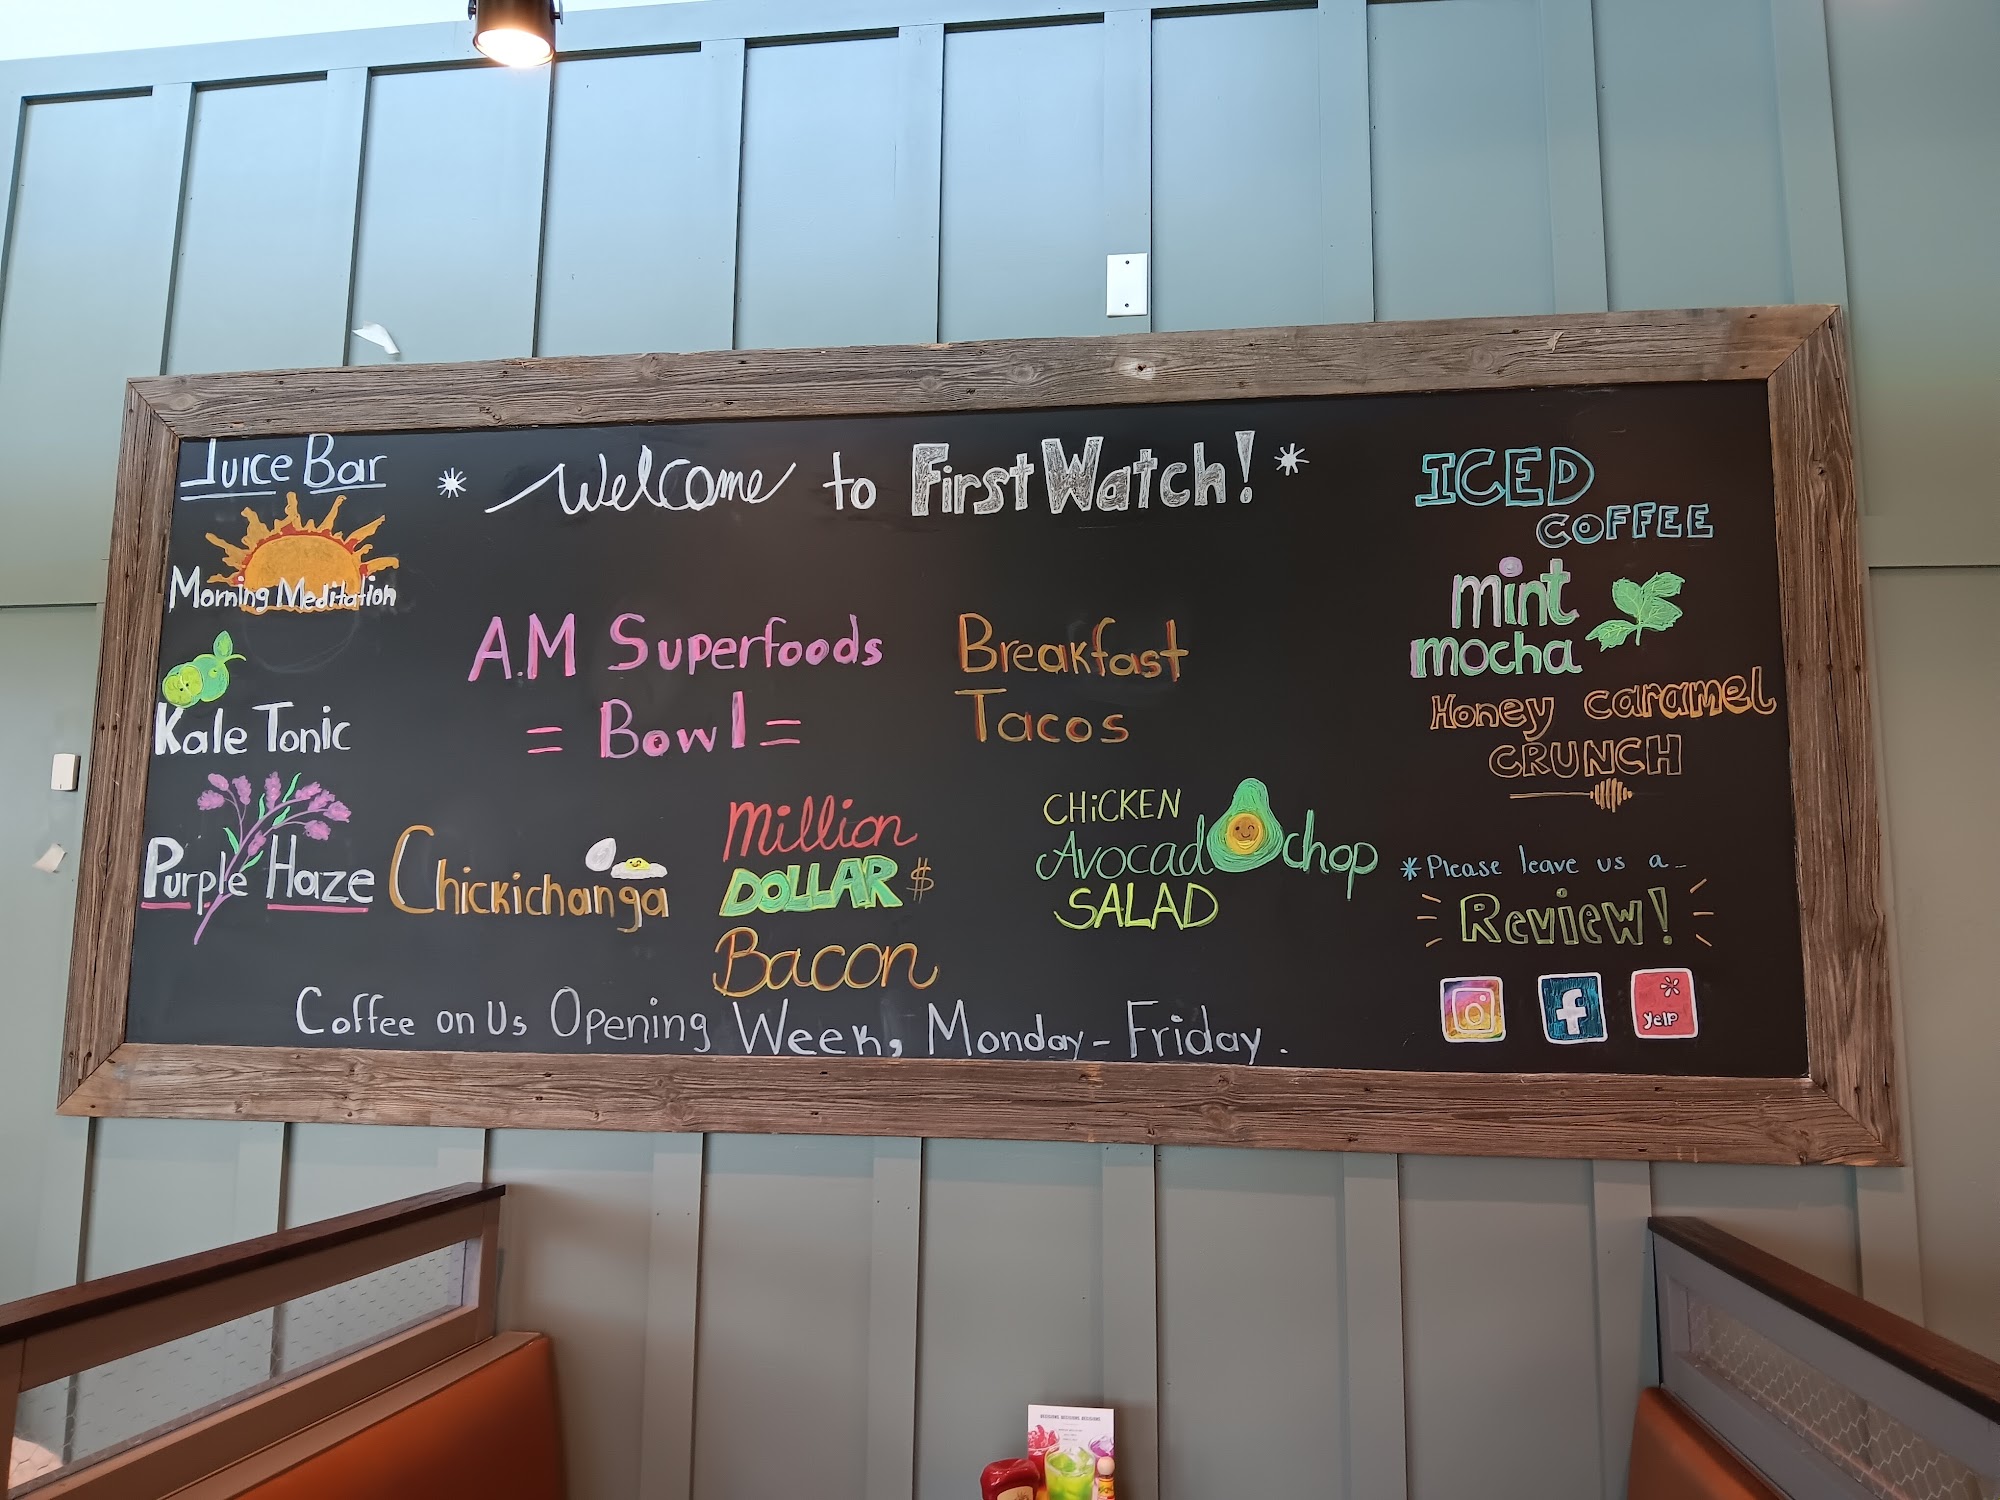 Juice Bar
* Welcome to First Watch! *
Morning Meditation
Kale Tonic
Purple Haze
A.M Superfoods
= Bowl =
Breakfast
Tacos
Chickichanga
Million
DOLLAR $
Bacon
CHiCKEN
Avocado chop
SALAD
ICED
COFFEE
mint
mocha
Honey caramel
CRUNCH
*Please leave us a
Review!
f
yelp
Coffee on Us Opening Week, Monday - Friday.